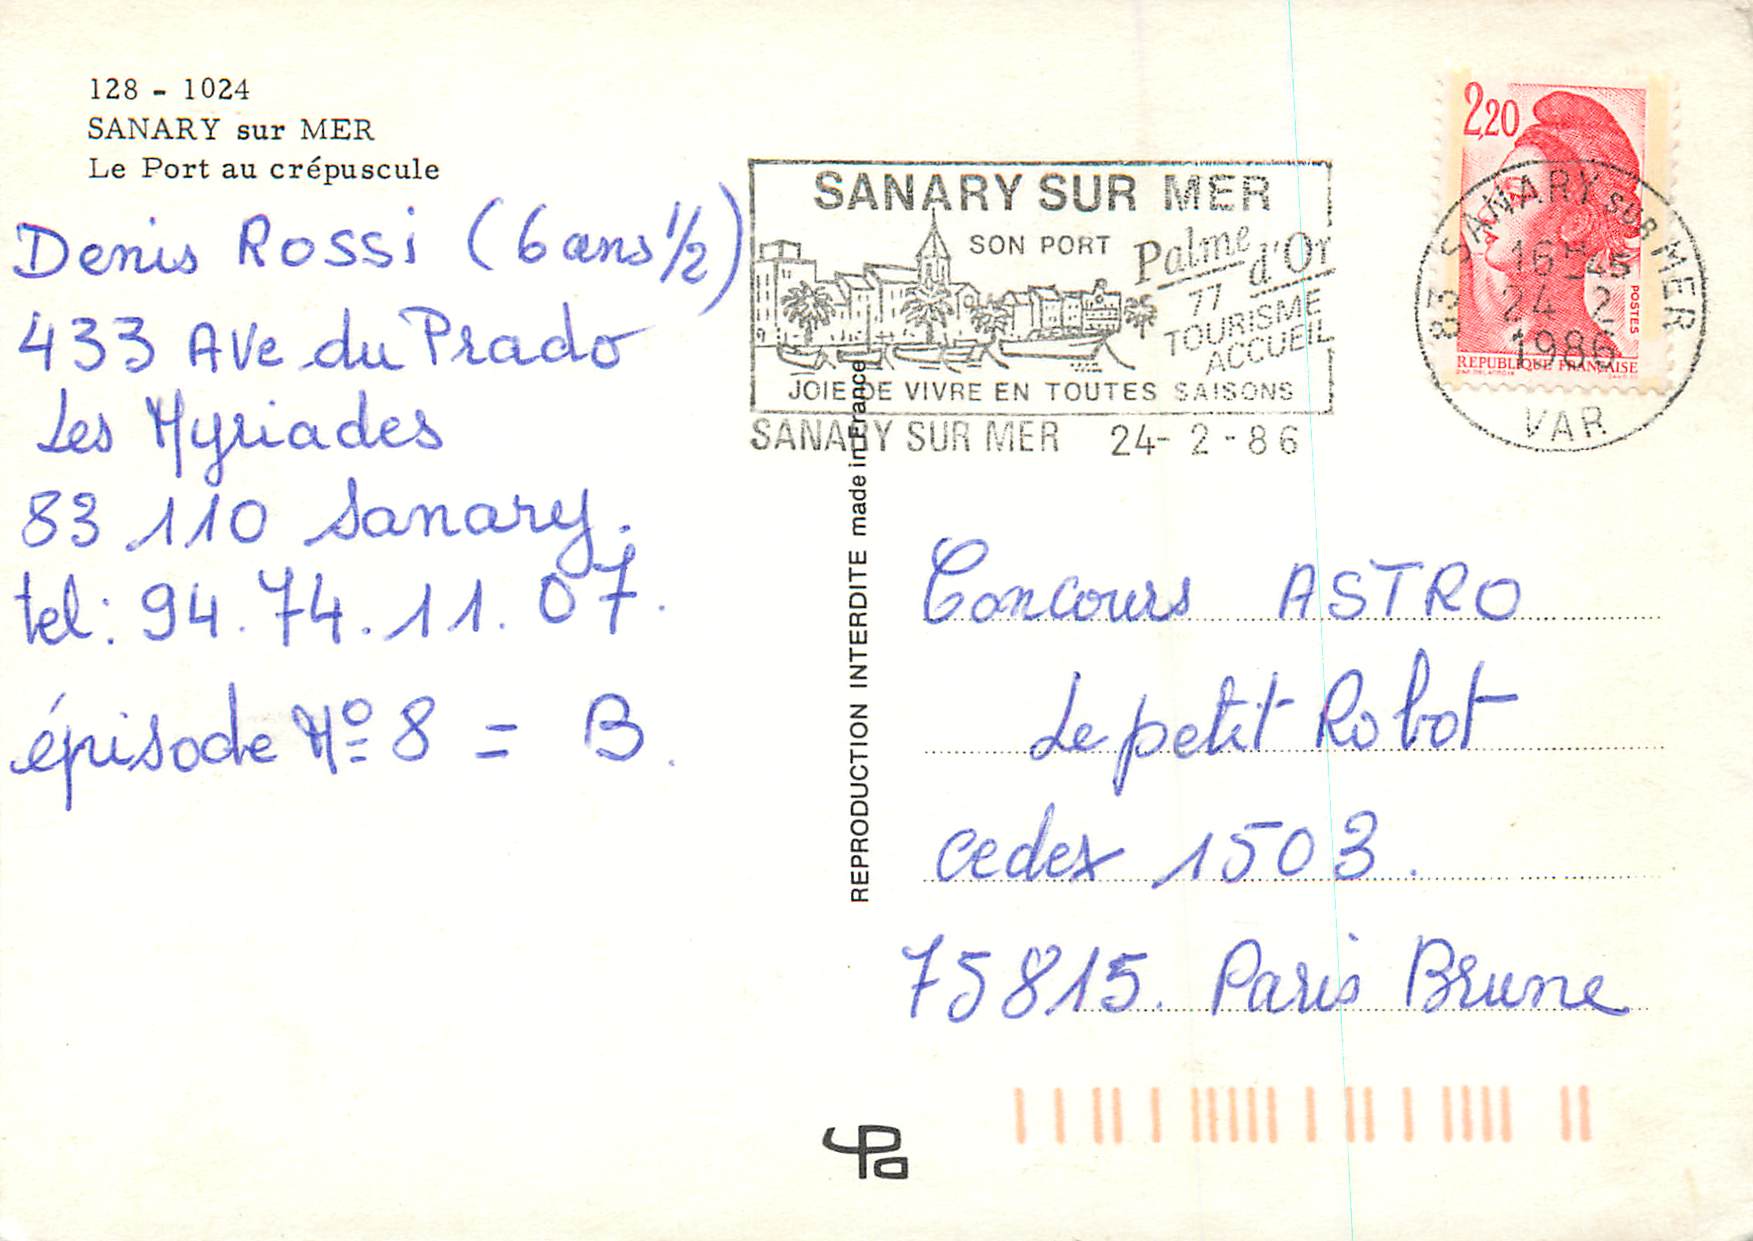 128 - 1024
SANARY sur MER
Le Port au crépuscule
Denis Rossi (6 ans 1/2)
433 Ave du Prado
Les Myriades
83 110 Sanary.
tel: 94.74.11.07.
épisode Nº 8 = B.
SANARY SUR MER
SON PORT
Palme d'Or
77
TOURISME
ACCUEIL
JOIE DE VIVRE EN TOUTES SAISONS
SANARY SUR MER 24-2-86
REPRODUCTION INTERDITE made in France
2,20
POSTES
REPUBLIQUE FRANÇAISE
83 SANARY SUR MER
16H45
24 2
1986
VAR
Concours ASTRO
Le petit Robot
cedex 1503.
75815. Paris Brune